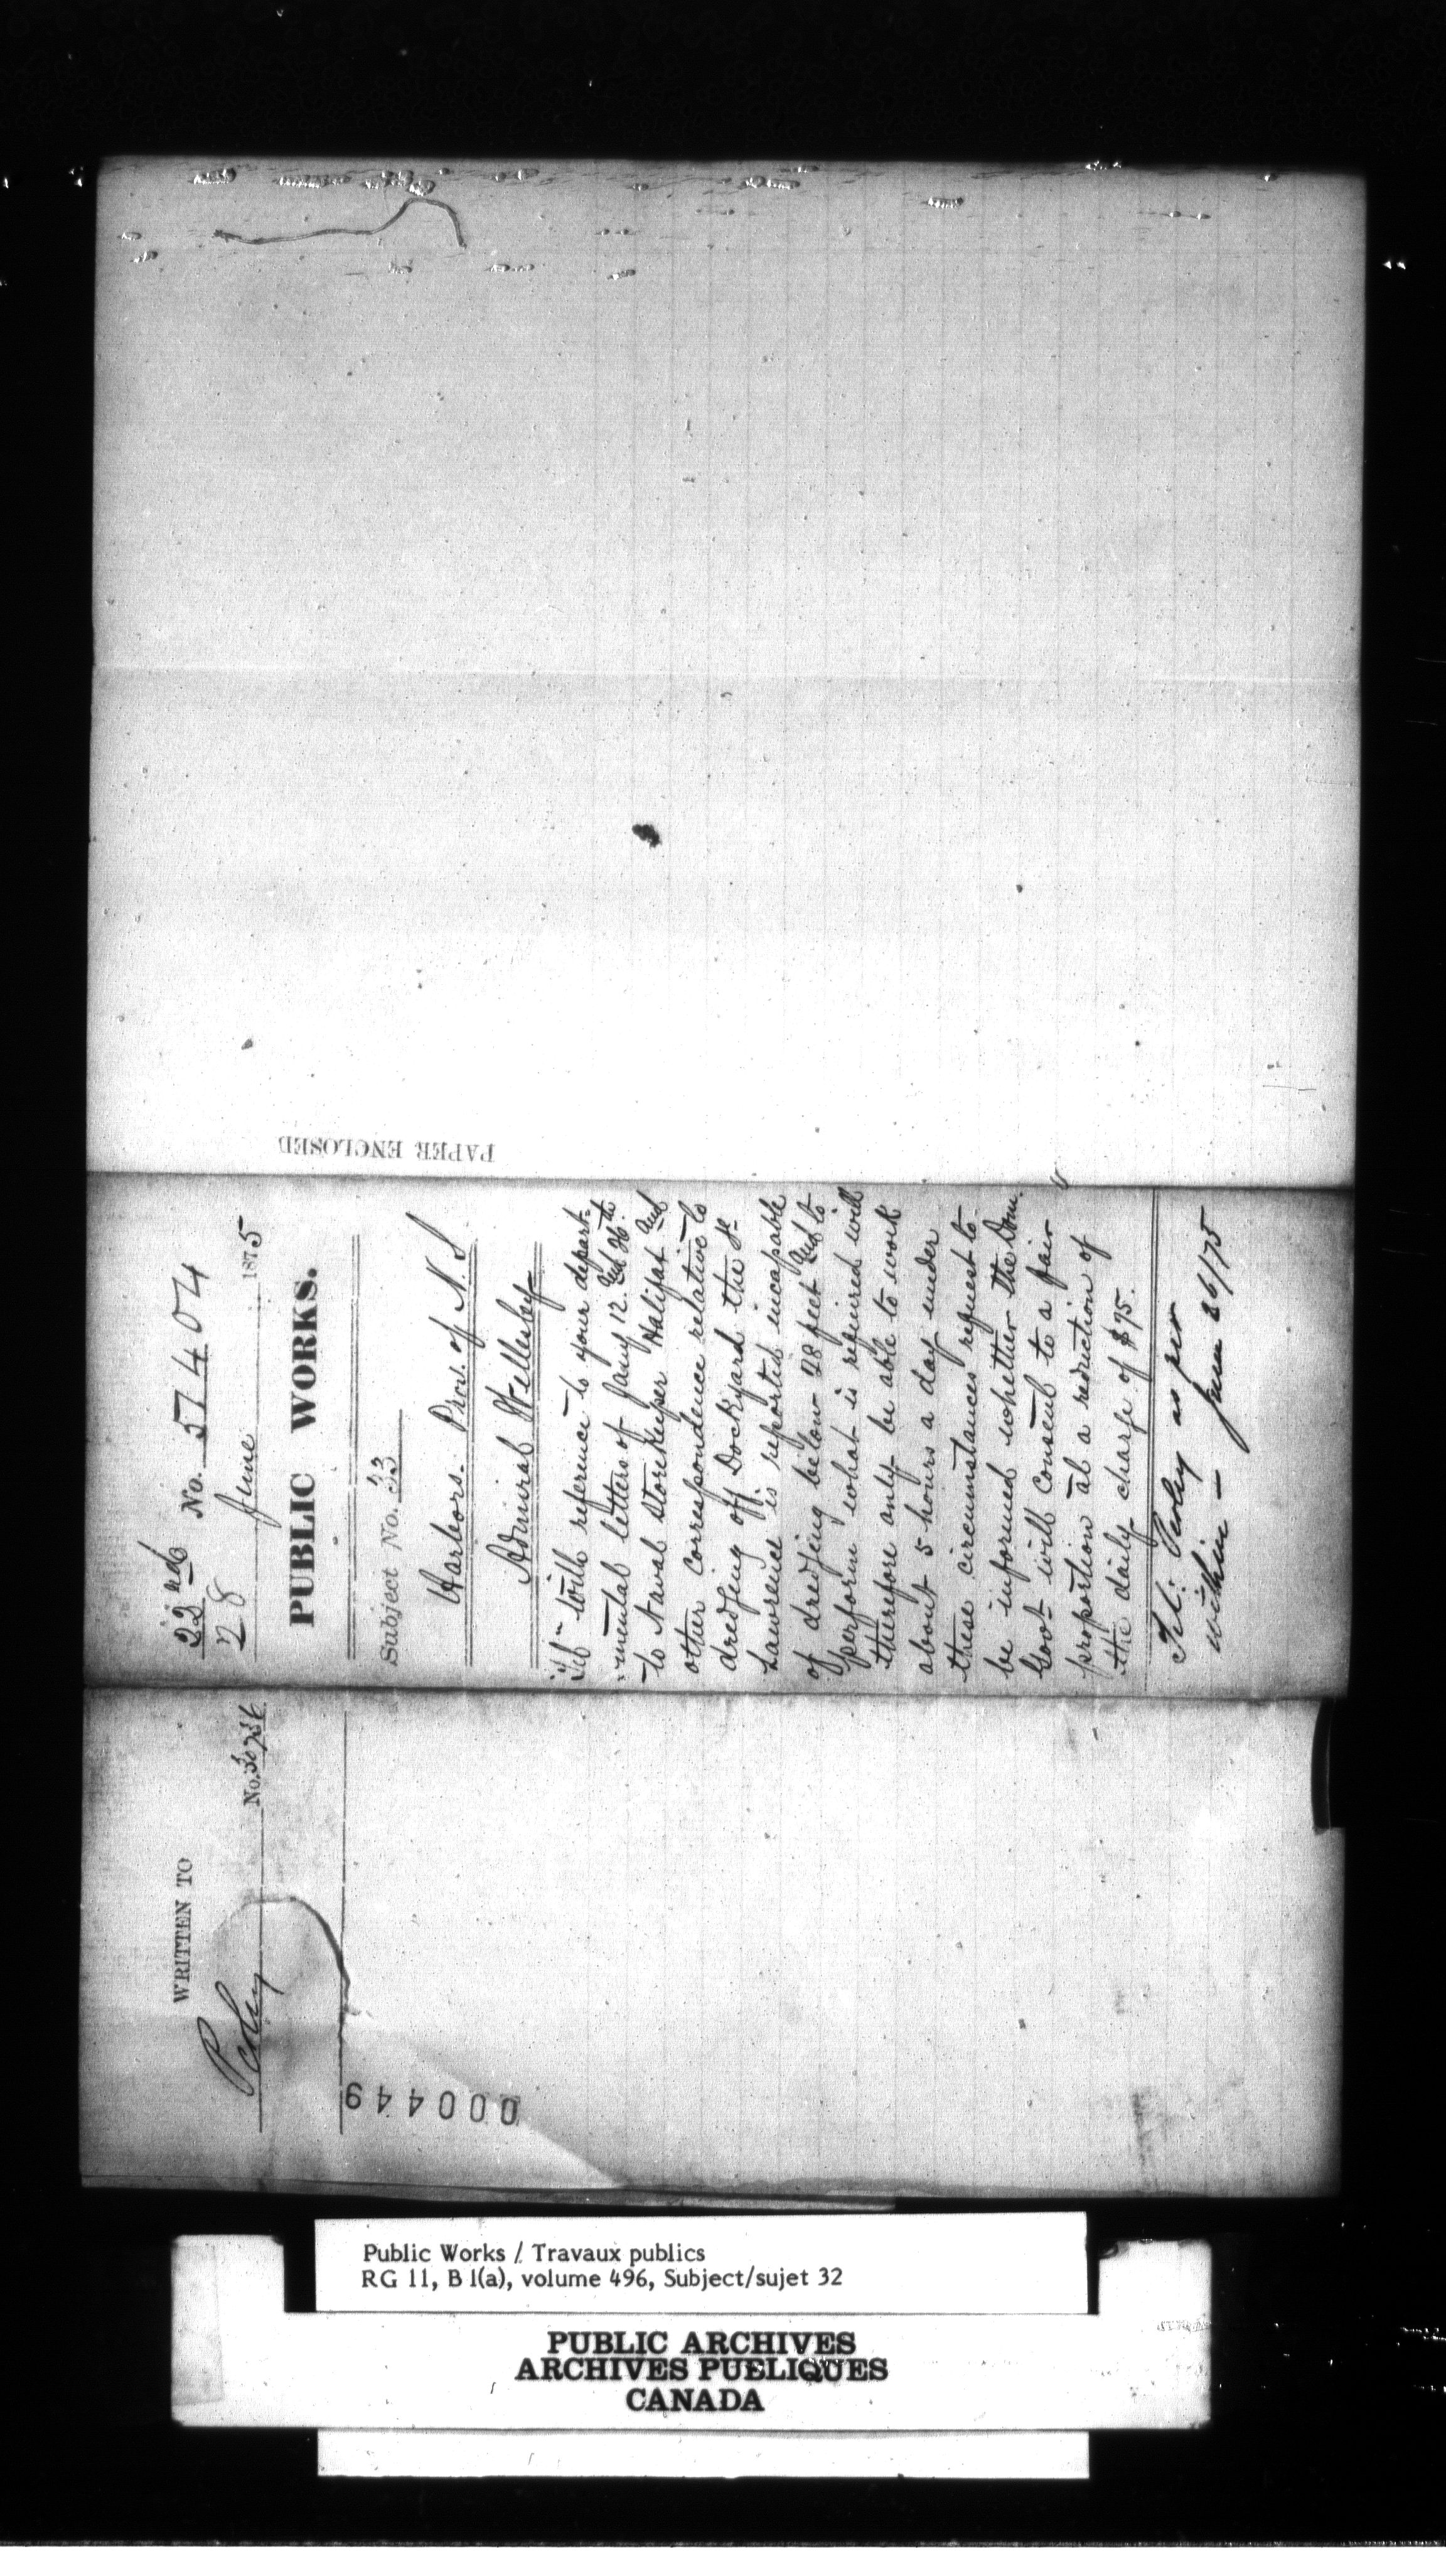 PAPER ENCLOSED
22nd No. 57404
28 June 1875
PUBLIC WORKS.
Subject No. 33
Harbors. Prov. of N. S
Admiral Wellesley
with reference to your depart-
-mental letters of Jany 12. and 26th
to Naval Storekeeper Halifax and
other correspondence relative to
dredging off Dockyard the St
Lawrence is reported incapable
of dredging below 28 feet and to
perform what is required will
therefore only be able to work
about 5 hours a day under
these circumstances request to
be informed whether the Dom.
Govt will consent to a fair
proportion as a reduction of
the daily charge of $75.
Tel: Perley as per
within - June 26/75
WRITTEN TO
Perley No.
000449
Public Works / Travaux publics
RG 11, B 1(a), volume 496, Subject/sujet 32
PUBLIC ARCHIVES
ARCHIVES PUBLIQUES
CANADA